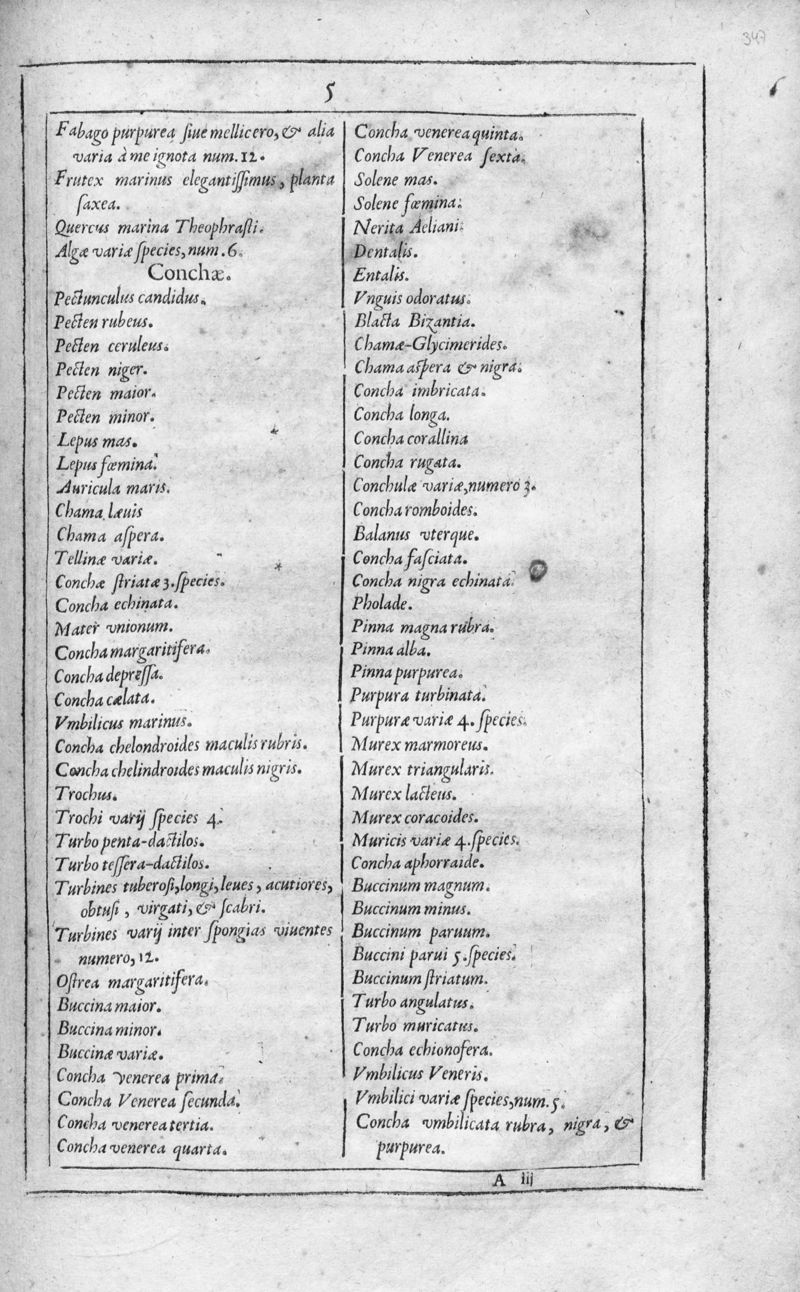 347
5
Fabago purpurea ſiue mellicero, & alia
varia à me ignota num. 12.
Frutex marinus elegantiſſimus, planta
ſaxea.
Quercus marina Theophraſti.
Algæ variæ ſpecies, num. 6.
Conchæ.
Pectunculus candidus.
Pecten rubeus.
Pecten ceruleus.
Pecten niger.
Pecten maior.
Pecten minor.
Lepus mas.
Lepus fœmina.
Auricula maris.
Chama læuis
Chama aſpera.
Tellinæ variæ.
Conchæ ſtriatæ 3. ſpecies.
Concha echinata.
Mater vnionum.
Concha margaritifera.
Concha depreſſa.
Concha cælata.
Vmbilicus marinus.
Concha chelondroides maculis rubris.
Concha chelindroides maculis nigris.
Trochus.
Trochi varij ſpecies 4.
Turbo penta-dactilos.
Turbo teſſera-dactilos.
Turbines tuberoſi, longi, leues, acutiores,
obtuſi, virgati, & ſcabri.
Turbines varij inter ſpongias viuentes
numero, 12.
Oſtrea margaritifera.
Buccina maior.
Buccina minor.
Buccinæ variæ.
Concha Venerea prima.
Concha Venerea ſecunda.
Concha venerea tertia.
Concha venerea quarta.
Concha venerea quinta.
Concha Venerea ſexta.
Solene mas.
Solene fœmina.
Nerita Aeliani.
Dentalis.
Entalis.
Vnguis odoratus.
Blacta Bizantia.
Chamæ-Glycimerides.
Chama aſpera & nigra.
Concha imbricata.
Concha longa.
Concha corallina
Concha rugata.
Conchulæ variæ, numero 3.
Concha romboides.
Balanus vterque.
Concha faſciata.
Concha nigra echinata.
Pholade.
Pinna magna rubra.
Pinna alba.
Pinna purpurea.
Purpura turbinata.
Purpuræ variæ 4. ſpecies.
Murex marmoreus.
Murex triangularis.
Murex lacteus.
Murex coracoides.
Muricis variæ 4. ſpecies.
Concha aphorraide.
Buccinum magnum.
Buccinum minus.
Buccinum paruum.
Buccini parui 5. ſpecies.
Buccinum ſtriatum.
Turbo angulatus.
Turbo muricatus.
Concha echionofera.
Vmbilicus Veneris.
Vmbilici variæ ſpecies, num. 5.
Concha vmbilicata rubra, nigra, &
purpurea.
A iij